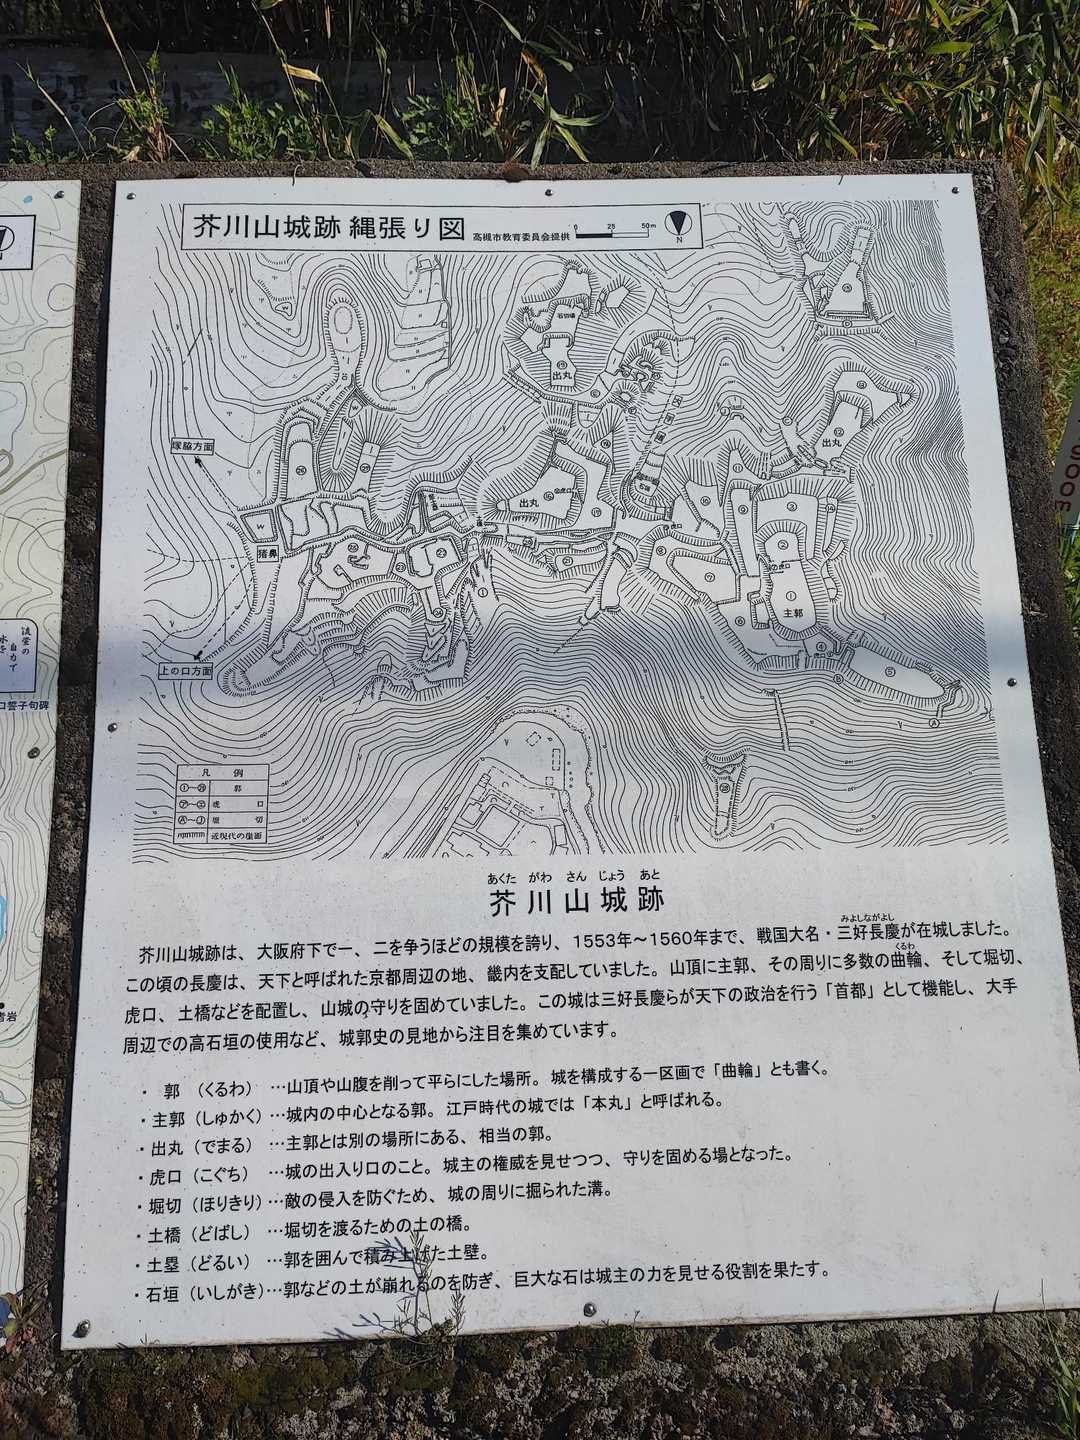 芥川山城跡 縄張り図
高槻市教育委員会提供
0 25 50m
N
石切場
出丸
塚脇方面
出丸
出丸
猪鼻
主郭
上の口方面
凡 例
郭
虎 口
堀 切
近現代の崖面
あくた がわ さん じょう あと
芥川山城跡
芥川山城跡は、大阪府下で一、二を争うほどの規模を誇り、1553年～1560年まで、戦国大名・三好長慶が在城しました。
みよしながよし
この頃の長慶は、天下と呼ばれた京都周辺の地、畿内を支配していました。山頂に主郭、その周りに多数の曲輪、そして堀切、
くるわ
虎口、土橋などを配置し、山城の守りを固めていました。この城は三好長慶らが天下の政治を行う「首都」として機能し、大手
周辺での高石垣の使用など、城郭史の見地から注目を集めています。
・ 郭 （くるわ） …山頂や山腹を削って平らにした場所。城を構成する一区画で「曲輪」とも書く。
・主郭（しゅかく）…城内の中心となる郭。江戸時代の城では「本丸」と呼ばれる。
・出丸（でまる） …主郭とは別の場所にある、相当の郭。
・虎口（こぐち） …城の出入り口のこと。城主の権威を見せつつ、守りを固める場となった。
・堀切（ほりきり）…敵の侵入を防ぐため、城の周りに掘られた溝。
・土橋（どばし） …堀切を渡るための土の橋。
・土塁（どるい） …郭を囲んで積み上げた土壁。
・石垣（いしがき）…郭などの土が崩れるのを防ぎ、巨大な石は城主の力を見せる役割を果たす。